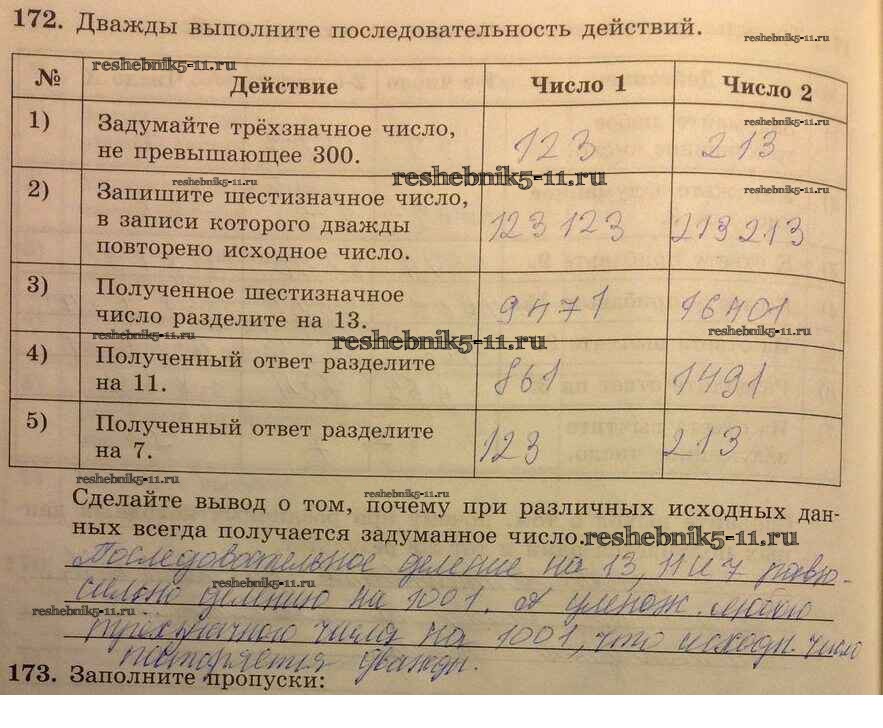 172. Дважды выполните последовательность действий.
reshebnik5-11.ru
reshebnik5-11.ru
№ Действие Число 1 Число 2
1) Задумайте трёхзначное число, не превышающее 300. 123 213
reshebnik5-11.ru
reshebnik5-11.ru reshebnik5-11.ru reshebnik5-11.ru
2) Запишите шестизначное число,
в записи которого дважды 123 123 213 213
повторено исходное число.
3) Полученное шестизначное
число разделите на 13. 9471 16401
reshebnik5-11.ru reshebnik5-11.ru reshebnik5-11.ru
4) Полученный ответ разделите
на 11. 861 1491
5) Полученный ответ разделите
на 7. 123 213
reshebnik5-11.ru reshebnik5-11.ru
Сделайте вывод о том, почему при различных исходных дан-
ных всегда получается задуманное число. reshebnik5-11.ru
Последовательное деление на 13, 11 и 7 равно-
reshebnik5-11.ru
сильно делению на 1001. А умнож. любого
reshebnik5-11.ru
трёхзначного числа на 1001, что исходн. число
повторяется дважды.
173. Заполните пропуски: